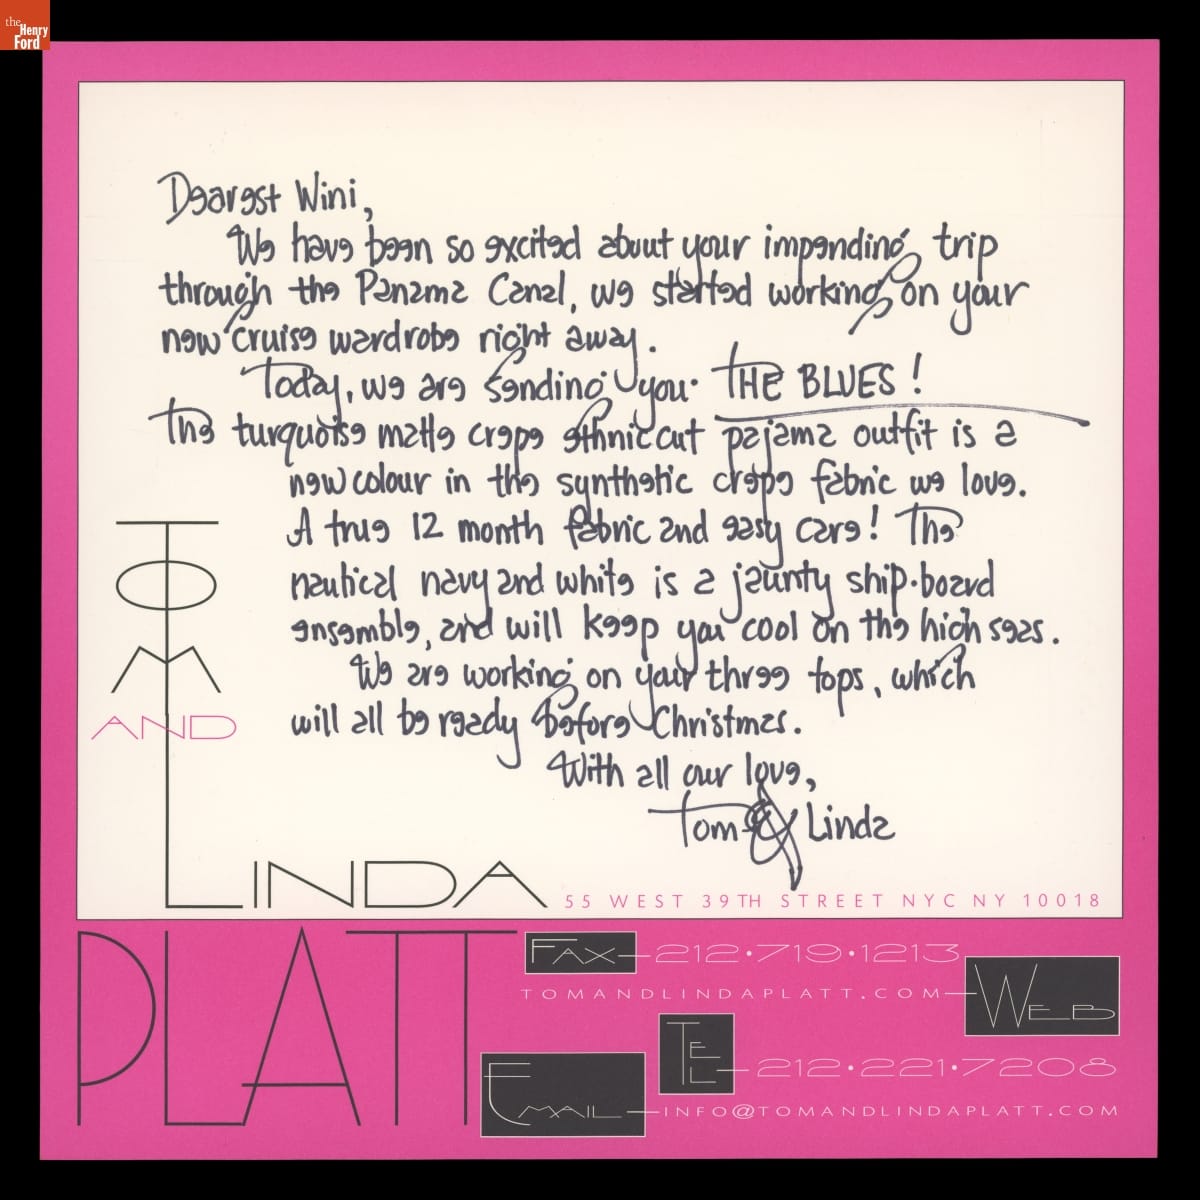 the
Henry
Ford
Dearest Wini,
We have been so excited about your impending trip
through the Panama Canal, we started working on your
new cruise wardrobe right away.
Today, we are sending you THE BLUES!
The turquoise matte crepe ethnic cut pajama outfit is a
new colour in the synthetic crepe fabric we love.
A true 12 month fabric and easy care! The
nautical navy and white is a jaunty ship-board
ensemble, and will keep you cool on the high seas.
We are working on your three tops, which
will all be ready before Christmas.
With all our love,
Tom & Linda
TOM
AND
LINDA
55 WEST 39TH STREET NYC NY 10018
PLATT
FAX 212·719·1213
TOMANDLINDAPLATT.COM WEB
TEL 212·221·7208
EMAIL INFO@TOMANDLINDAPLATT.COM